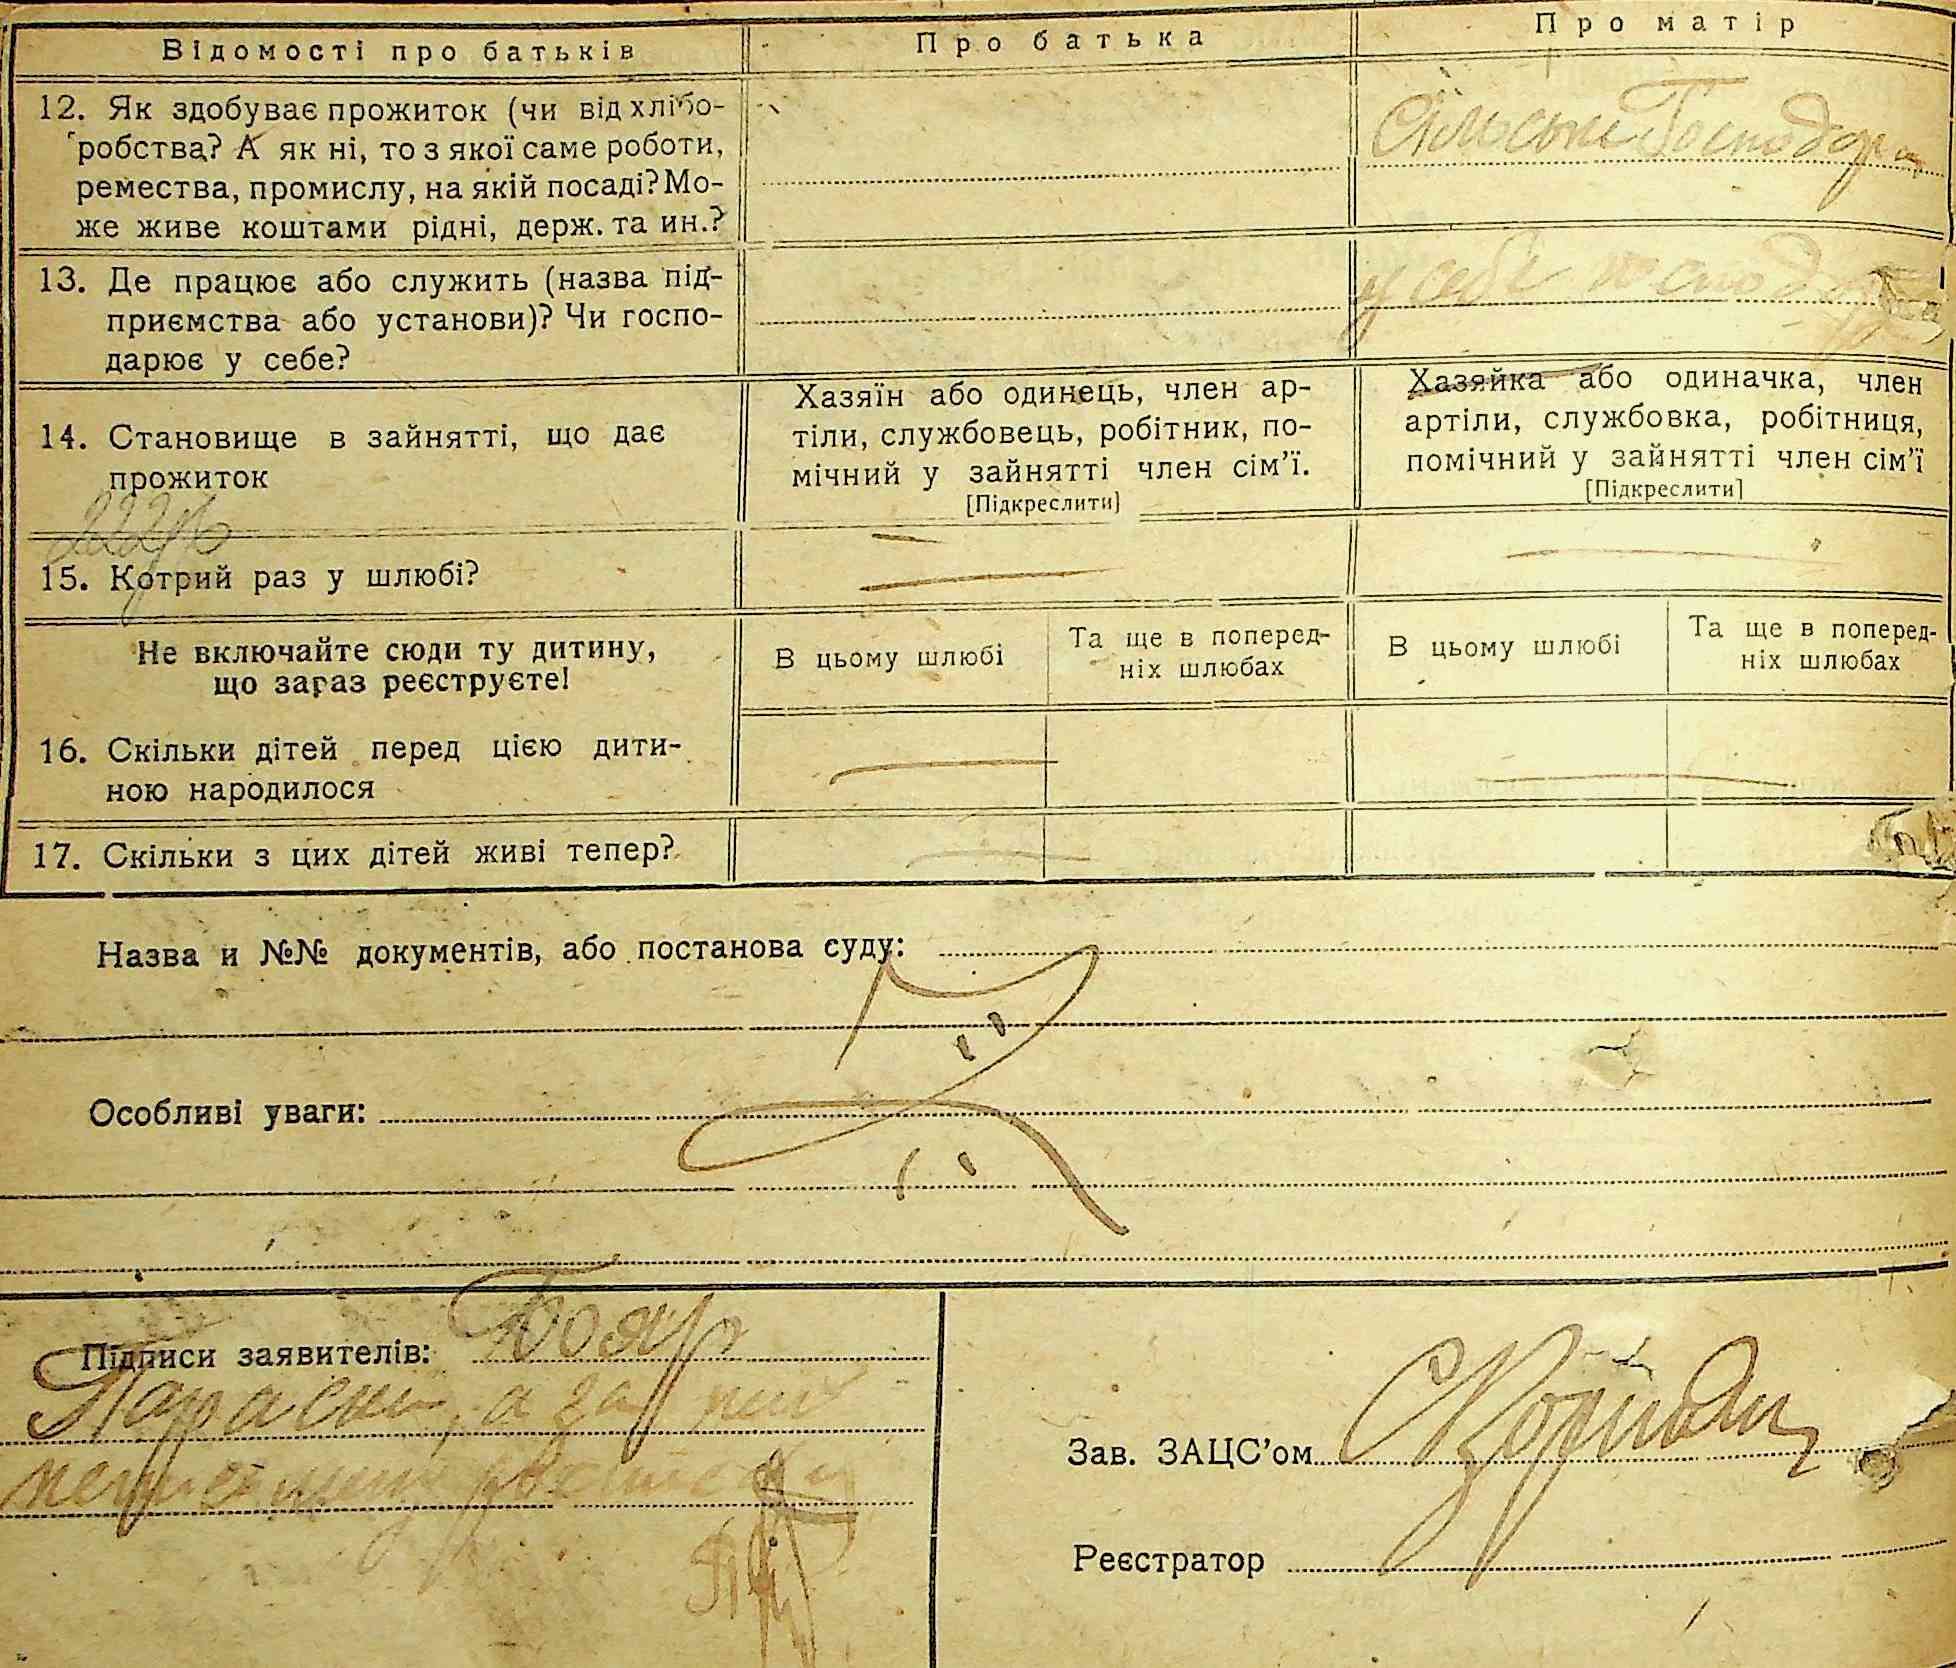 Відомості про батьків
Про батька
Про матір
12. Як здобуває прожиток (чи від хлібо-
робства? А як ні, то з якої саме роботи,
ремества, промислу, на якій посаді? Мо-
же живе коштами рідні, держ. та ин.?
Сільське Господар
13. Де працює або служить (назва під-
приємства або установи)? Чи госпо-
дарює у себе?
у себе
14. Становище в зайнятті, що дає
прожиток
Хазяїн або одинець, член ар-
тіли, службовець, робітник, по-
мічний у зайнятті член сім'ї.
[Підкреслити]
Хазяйка або одиначка, член
артіли, службовка, робітниця,
помічний у зайнятті член сім'ї
[Підкреслити]
15. Котрий раз у шлюбі?
Не включайте сюди ту дитину,
що зараз реєструєте!
В цьому шлюбі
Та ще в поперед-
ніх шлюбах
В цьому шлюбі
Та ще в поперед-
ніх шлюбах
16. Скільки дітей перед цією дити-
ною народилося
17. Скільки з цих дітей живі тепер?
Назва и №№ документів, або постанова суду:
Особливі уваги:
Підписи заявителів: Бояр
а за
Зав. ЗАЦС'ом
Реєстратор